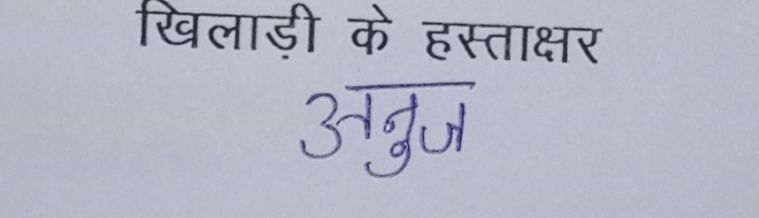 खिलाड़ी के हस्ताक्षर
अनुज